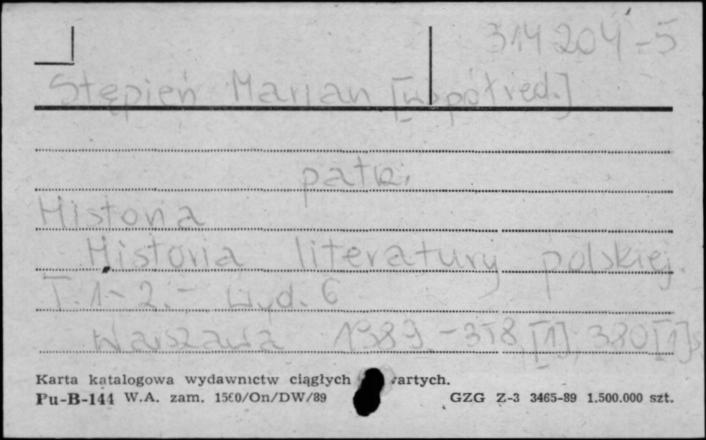 314204-5
Stępień Marian [współred.]
patrz.
Historia
Historia literatury polskiej.
T. 1-2.- Wyd. 6
Warszawa 1989.-358,[1]; 380[1]s
Karta katalogowa wydawnictw ciągłych artych.
Pu-B-144 W.A. zam. 1560/On/DW/89 GZG Z-3 3465-89 1.500.000 szt.